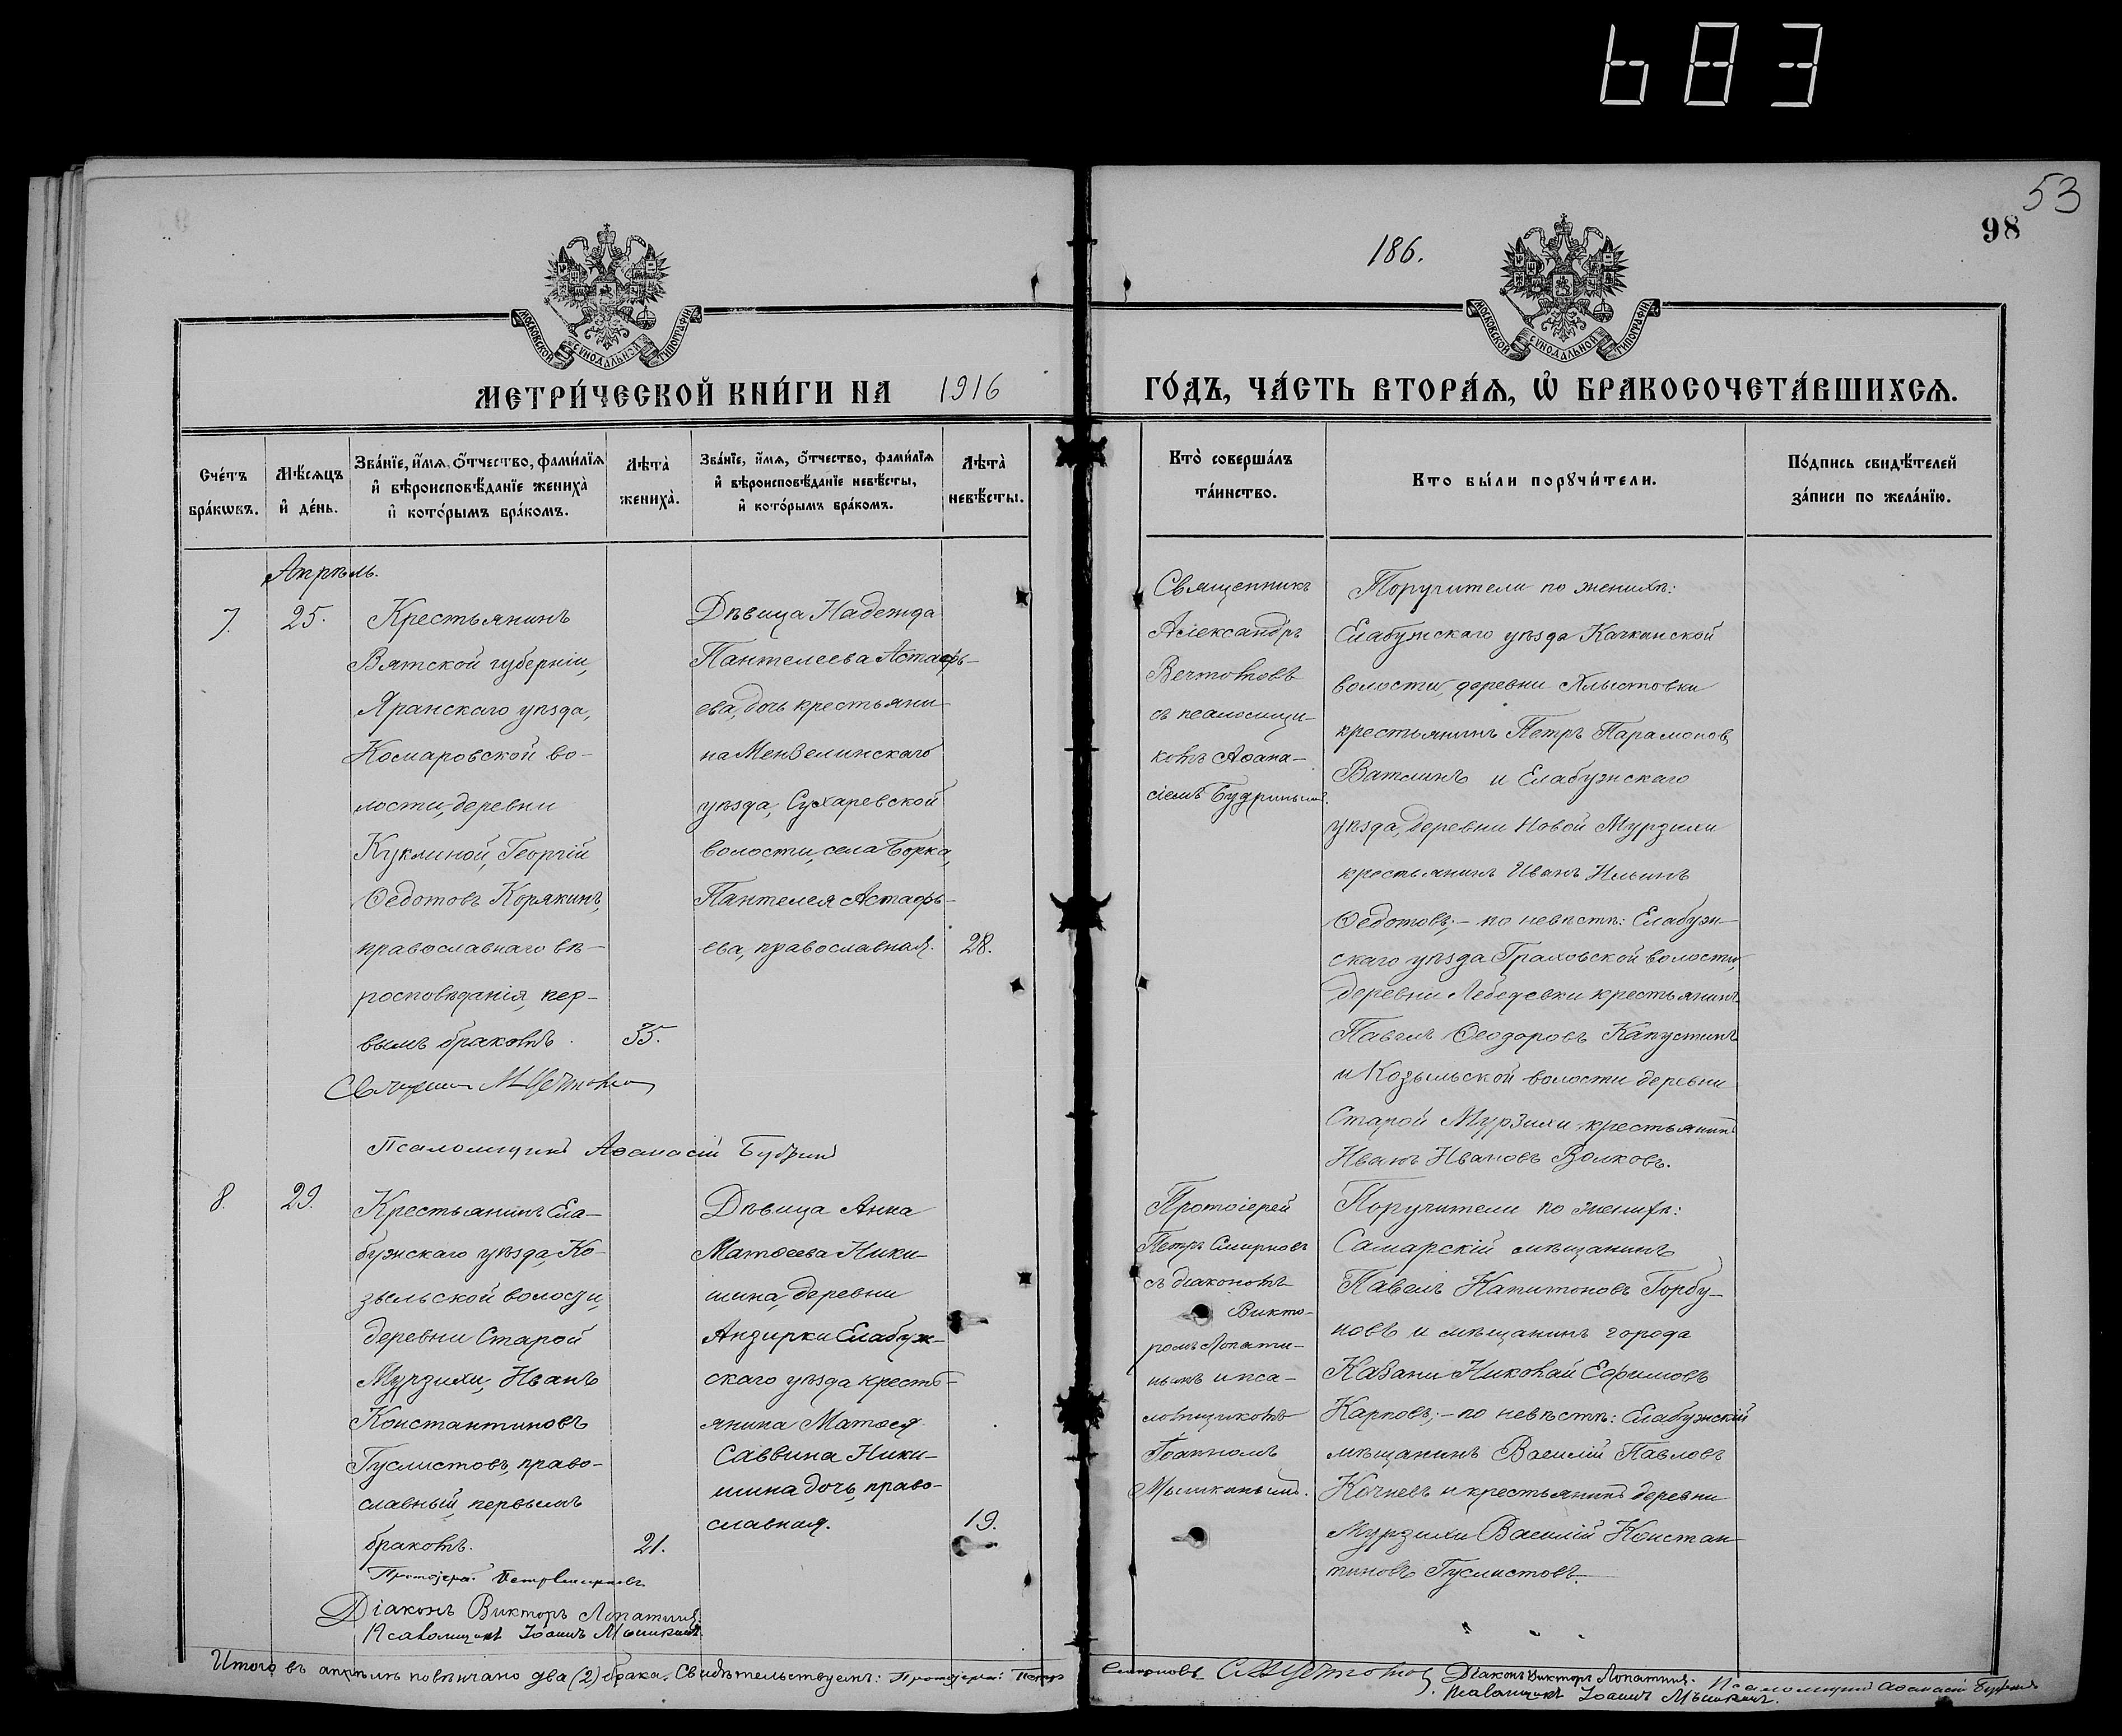 683
53
98
186.
МОСКОВСКОЙ СѴНОДАЛЬНОЙ ТИПОГРАФІИ
МОСКОВСКОЙ СѴНОДАЛЬНОЙ ТИПОГРАФІИ
МЕТРИ́ЧЕСКОЙ КНИ́ГИ НА 1916
ГО́ДЪ, ЧА́СТЬ ВТОРА́Ѧ, Ѽ БРАКОСОЧЕТА́ВШИХСѦ.
Сче́тъ
бра́кѡвъ.
Мѣ́сѧцъ
и҆ де́нь.
Зва́нїе, и҆́мѧ, о҆́тчество, фами́лїѧ
и҆ вѣроисповѣ́данїе жениха̀
и҆ кото́рымъ бра́комъ.
Лѣта̀
жениха̀.
Зва́нїе, и҆́мѧ, о҆́тчество, фами́лїѧ
и҆ вѣроисповѣ́данїе невѣ́сты,
и҆ кото́рымъ бра́комъ.
Лѣта̀
невѣ́сты.
Кто̀ соверша́лъ
та́инство.
Кто бы́ли порꙋчи́тели.
По́дпись свидѣ́телей
за́писи по жела́нїю.
Апрѣль.
7.
25.
Крестьянинъ
Вятской губерніи,
Яранскаго уѣзда,
Комаровской во-
лости, деревни
Куклиной, Георгій
Ѳедотовъ Корякинъ,
православнаго вѣ-
росповѣданія, пер-
вымъ бракомъ.
35.
Дѣвица Надежда
Пантелеева Астафь-
ева, дочь крестьяни-
на Мензелинскаго
уѣзда, Сухаревской
волости, села Борка,
Пантелея Астафь-
ева, православная.
28.
Священникъ
Александръ
Вечтомовъ
съ псаломщи-
комъ Аѳана-
сіемъ Будринымъ.
Поручители по женихѣ:
Елабужскаго уѣзда Качкинской
волости, деревни Хлыстовки
крестьянинъ Петръ Парамонов
Ватлинъ и Елабужскаго
уѣзда, деревни Новой Мурзихи
крестьянинъ Иванъ Ильинъ
Ѳедотовъ;- по невѣстѣ: Елабуж-
скаго уѣзда Граховской волости,
деревни Лебедевки крестьянинъ
Павелъ Ѳеодоровъ Капустинъ
и Козыльской волости деревни
Старой Мурзихи крестьянинъ
Иванъ Ивановъ Волковъ.
Псаломщикъ Аѳанасій Будринъ
8.
29.
Крестьянинъ Ела-
бужскаго уѣзда, Ко-
зыльской волости,
деревни Старой
Мурзихи, Иванъ
Константиновъ
Гуслистовъ, право-
славный, первымъ
бракомъ.
21.
Дѣвица Анна
Матѳеева Ники-
шина, деревни
Анзирки Елабуж-
скаго уѣзда кресть-
янина Матѳея
Саввина Ники-
шина дочь, право-
славная.
19.
Протоіерей
Петръ Смирновъ
съ діакономъ
Викто-
ромъ Лопати-
нымъ и пса-
ломщикомъ
Іоанномъ
Мышкинымъ.
Поручители по женихѣ:
Самарскій мѣщанинъ
Павелъ Капитоновъ Горбу-
новъ и мѣщанинъ города
Казани Николай Ефимовъ
Карповъ;- по невѣстѣ: Елабужскій
мѣщанинъ Василій Павловъ
Кочневъ и крестьянинъ деревни
Мурзихи Василій Констан-
тиновъ Гуслистовъ.
Протоіерей Петръ Смирновъ
Діаконъ Викторъ Лопатинъ.
Псаломщикъ Іоаннъ Мышкинъ.
Итого въ апрѣлѣ повѣнчано два (2) брака. Свидѣтельствуемъ: Протоіерей Петръ Смирновъ
Діаконъ Викторъ Лопатинъ. Псаломщикъ Аѳанасій Будринъ
Псаломщикъ Іоаннъ Мышкинъ.